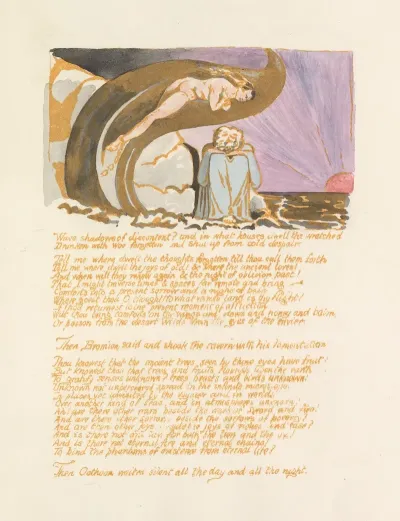 Wave shadows of discontent? and in what houses dwell the wretched
Drunken with woe forgotten, and shut up from cold despair.
Tell me where dwell the thoughts forgotten till thou call them forth
Tell me where dwell the joys of old! & where the ancient loves?
And when will they renew again & the night of oblivion past?
That I might traverse times & spaces far remote and bring
Comforts into a present sorrow and a night of pain
Where goest thou O thought! to what remote land is thy flight?
If thou returnest to the present moment of affliction
Wilt thou bring comforts on thy wings and dews and honey and balm
Or poison from the desart wilds, from the eyes of the envier.
Then Bromion said: and shook the cavern with his lamentation
Thou knowest that the ancient trees seen by thine eyes have fruit:
But knowest thou that trees and fruits flourish upon the earth
To gratify senses unknown? trees beasts and birds unknown:
Unknown, not unpercievd, spread in the infinite microscope,
In places yet unvisited by the voyager. and in worlds
Over another kind of seas, and in atmospheres unknown.
Ah! are there other wars, beside the wars of sword and fire!
And are there other sorrows, beside the sorrows of poverty?
And are there other joys, beside the joys of riches and ease?
And is there not one law for both the lion and the ox?
And is there not eternal fire, and eternal chains?
To bind the phantoms of existence from eternal life?
Then Oothoon waited silent all the day and all the night.